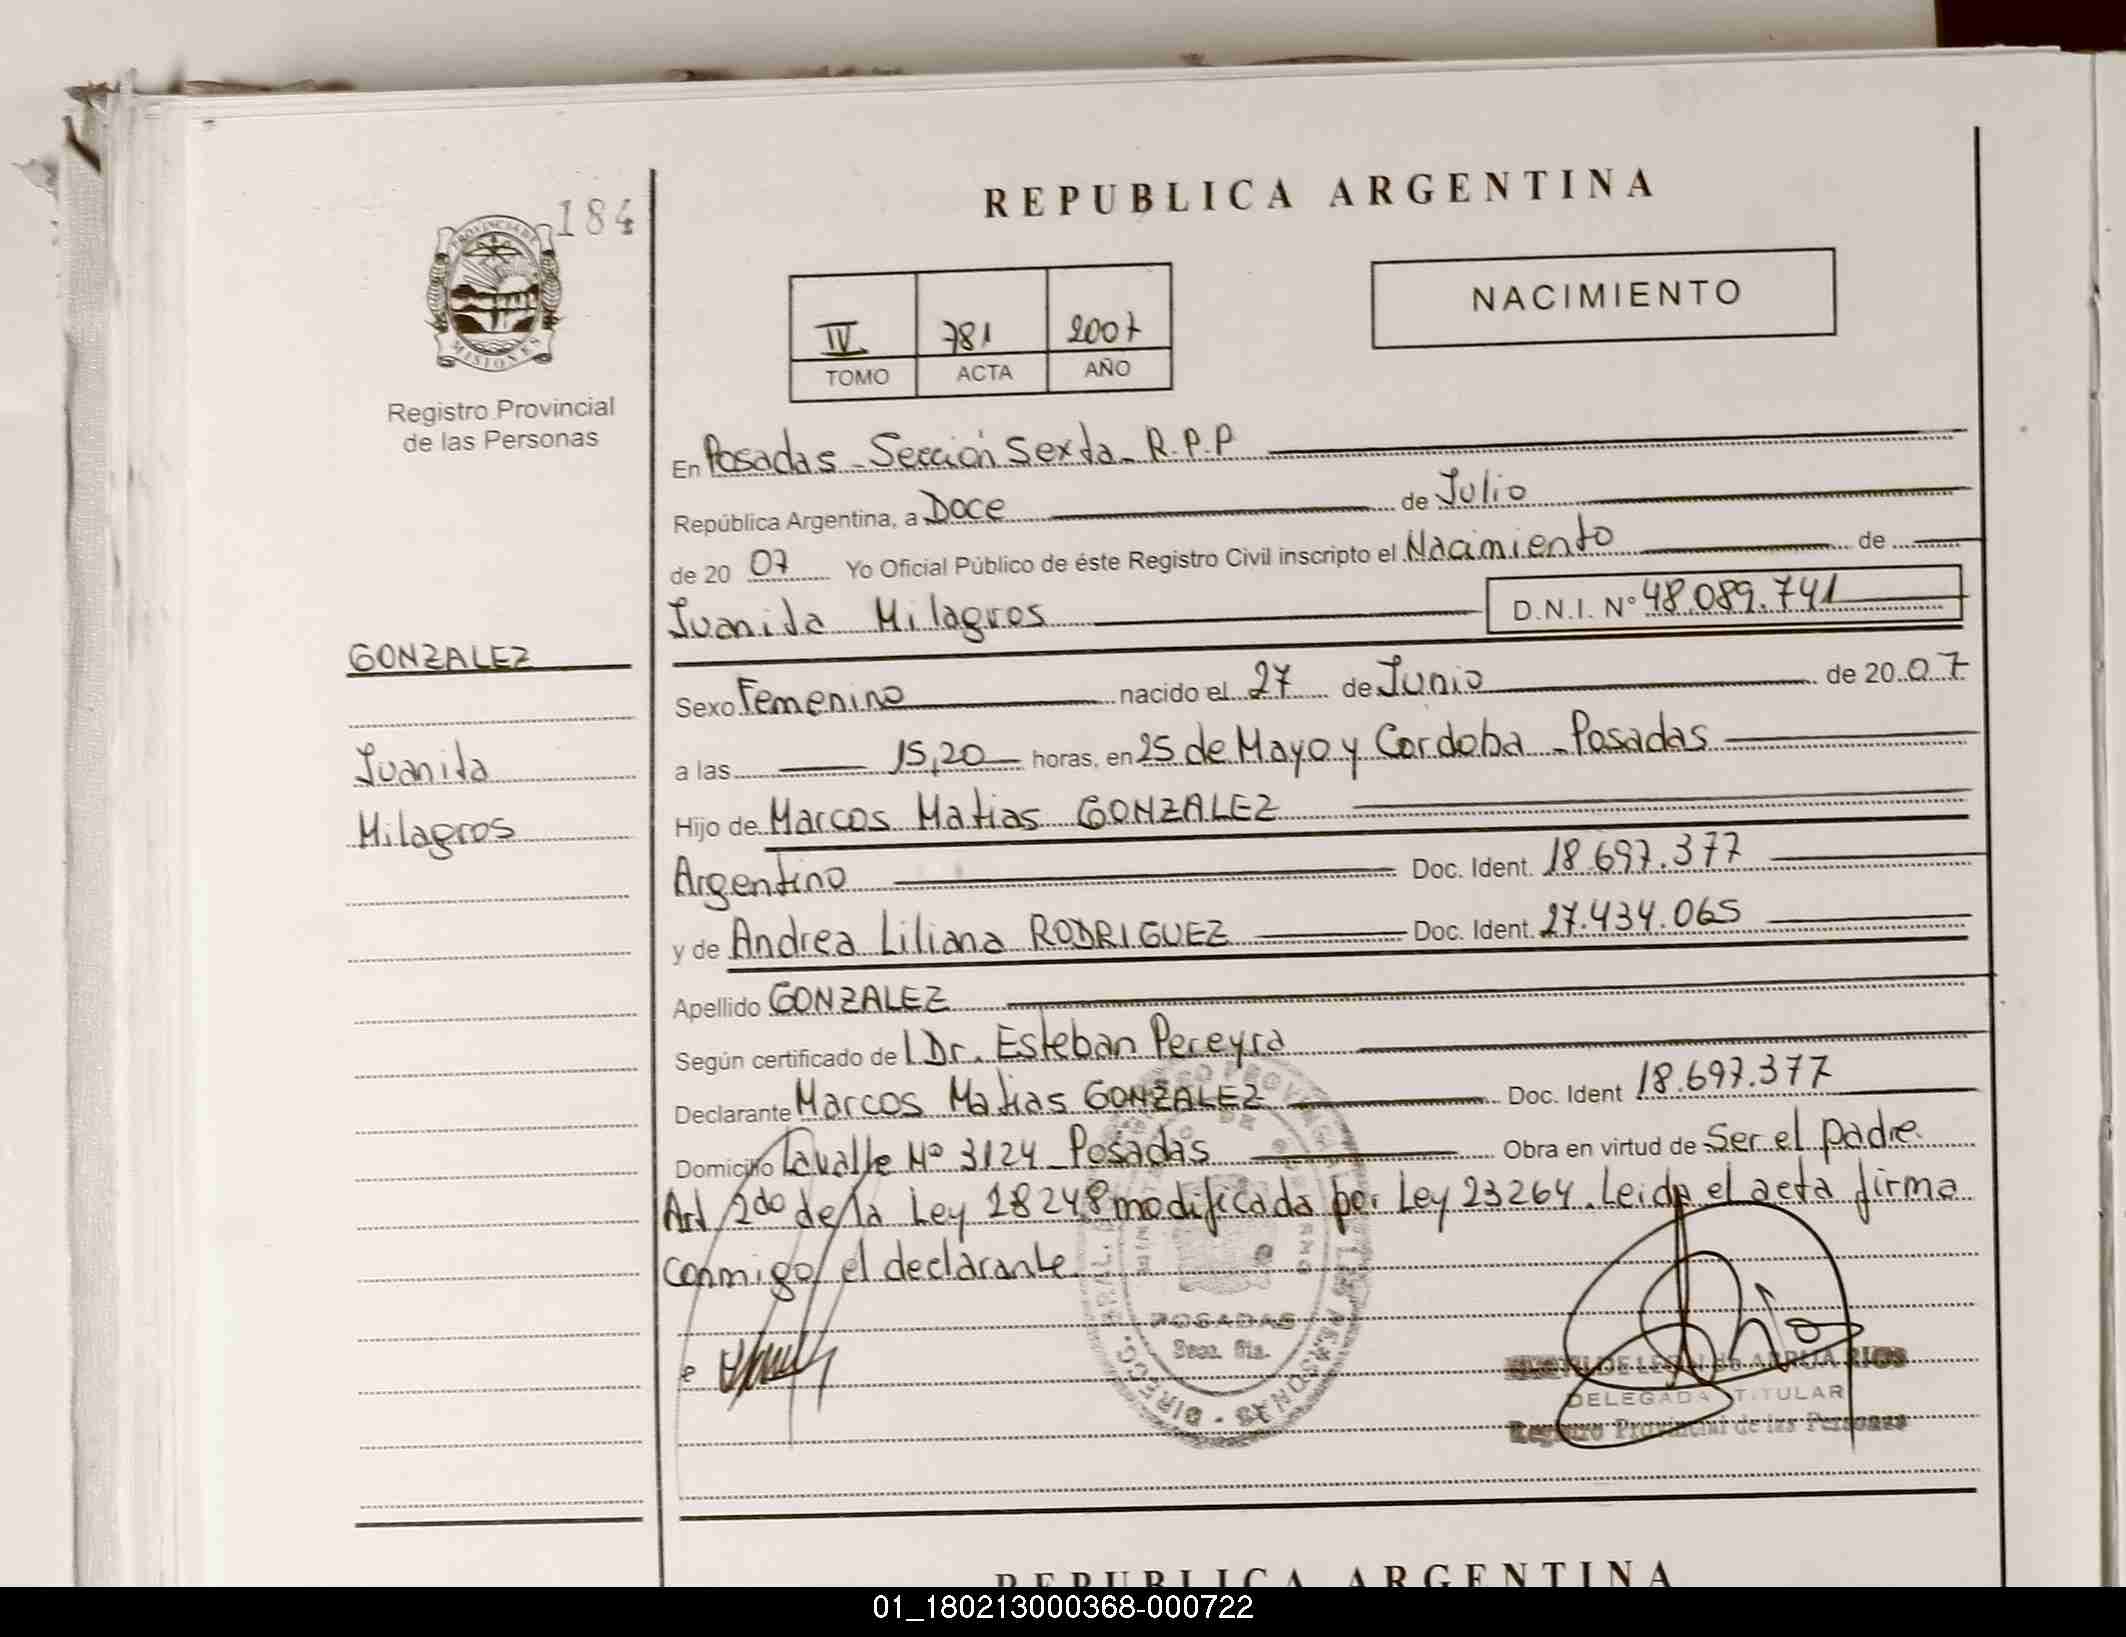 184
PROVINCIA DE
MISIONES
Registro Provincial
de las Personas
GONZALEZ
Juanita
Milagros
REPUBLICA ARGENTINA
IV 781 2007
TOMO ACTA AÑO
NACIMIENTO
En Posadas - Sección Sexta - R.P.P
República Argentina, a Doce de Julio
de 20 07 Yo Oficial Público de éste Registro Civil inscripto el Nacimiento de
Juanita Milagros D.N.I. Nº 48.089.741
Sexo Femenino nacido el 27 de Junio de 20 07
a las 15,20 horas, en 25 de Mayo y Cordoba - Posadas
Hijo de Marcos Matias GONZALEZ
Argentino Doc. Ident. 18.697.377
y de Andrea Liliana RODRIGUEZ Doc. Ident. 27.434.065
Apellido GONZALEZ
Según certificado de l Dr. Esteban Pereyra
Declarante Marcos Matias GONZALEZ Doc. Ident 18.697.377
Domicilio Lavalle Nº 3124 - Posadas Obra en virtud de Ser el padre
Art 2do de la Ley 18248 modificada por Ley 23264. Leida el acta firma
conmigo el declarante
POSADAS
Secc. 6ta.
DELEGADA TITULAR
Registro Provincial de las Personas
REPUBLICA ARGENTINA
01_180213000368-000722